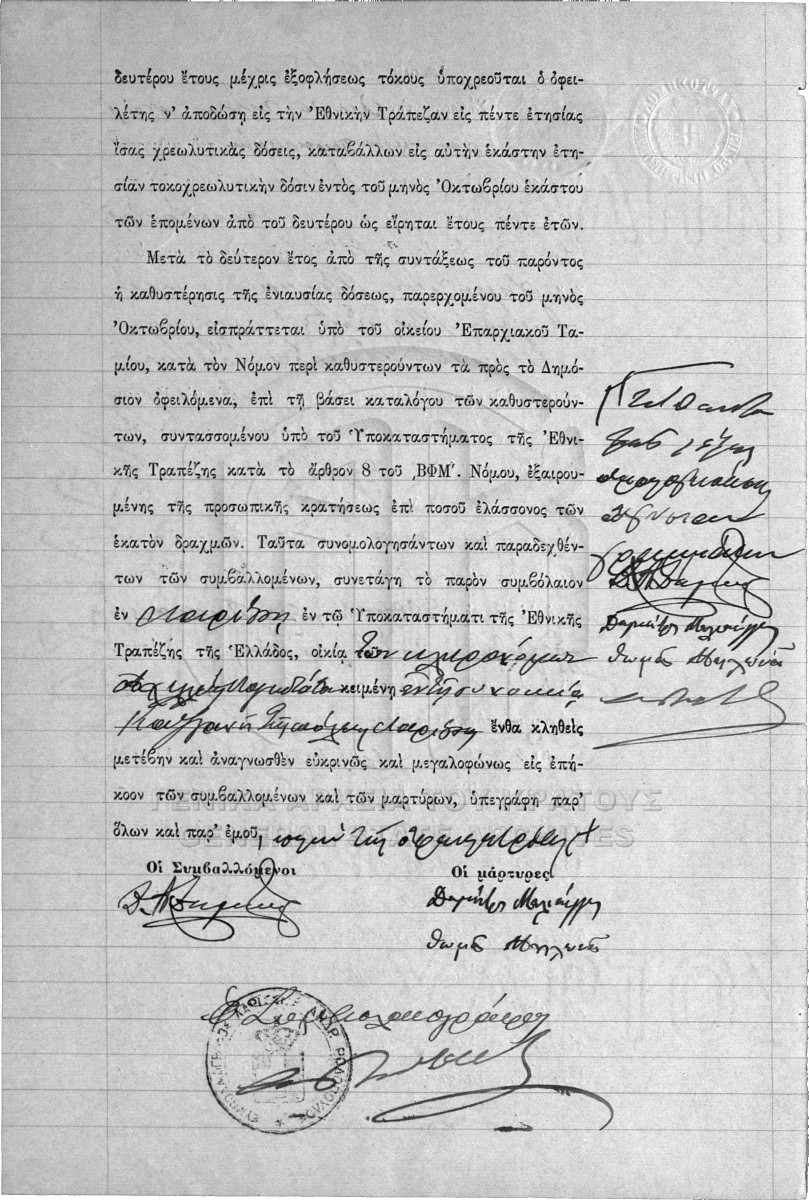 δευτέρου ἔτους μέχρις ἐξοφλήσεως τόκους ὑποχρεοῦται ὁ ὀφει-
λέτης ν' ἀποδώσῃ εἰς τὴν Ἐθνικὴν Τράπεζαν εἰς πέντε ἐτησίας
ἴσας χρεωλυτικὰς δόσεις, καταβάλλων εἰς αὐτὴν ἑκάστην ἐτη-
σίαν τοκοχρεωλυτικὴν δόσιν ἐντὸς τοῦ μηνὸς Ὀκτωβρίου ἑκάστου
τῶν ἑπομένων ἀπὸ τοῦ δευτέρου ὡς εἴρηται ἔτους πέντε ἐτῶν.
Μετὰ τὸ δεύτερον ἔτος ἀπὸ τῆς συντάξεως τοῦ παρόντος
ἡ καθυστέρησις τῆς ἐνιαυσίας δόσεως, παρερχομένου τοῦ μηνὸς
Ὀκτωβρίου, εἰσπράττεται ὑπὸ τοῦ οἰκείου Ἐπαρχιακοῦ Τα-
μίου, κατὰ τὸν Νόμον περὶ καθυστερούντων τὰ πρὸς τὸ Δημό-
σιον ὀφειλόμενα, ἐπὶ τῇ βάσει καταλόγου τῶν καθυστερούν-
των, συντασσομένου ὑπὸ τοῦ Ὑποκαταστήματος τῆς Ἐθνι-
κῆς Τραπέζης κατὰ τὸ ἄρθρον 8 τοῦ ͵ΒΦΜʹ. Νόμου, ἐξαιρου-
μένης τῆς προσωπικῆς κρατήσεως ἐπὶ ποσοῦ ἐλάσσονος τῶν
ἑκατὸν δραχμῶν. Ταῦτα συνομολογησάντων καὶ παραδεχθέν-
των τῶν συμβαλλομένων, συνετάγη τὸ παρὸν συμβόλαιον
ἐν Λαρίσῃ ἐν τῷ Ὑποκαταστήματι τῆς Ἐθνικῆς
Τραπέζης τῆς Ἑλλάδος, οἰκίᾳ τῶν κληρονόμων
κειμένῃ ἐν τῇ συνοικίᾳ
τῆς πόλεως Λαρίσης ἔνθα κληθεὶς
μετέβην καὶ ἀναγνωσθὲν εὐκρινῶς καὶ μεγαλοφώνως εἰς ἐπή-
κοον τῶν συμβαλλομένων καὶ τῶν μαρτύρων, ὑπεγράφη παρ'
ὅλων καὶ παρ' ἐμοῦ,
ΓΕΝΙΚΑ ΑΡΧΕΙΑ ΤΟΥ ΚΡΑΤΟΥΣ
Οἱ Συμβαλλόμενοι Οἱ μάρτυρες
Ὁ Συμβολαιογράφος